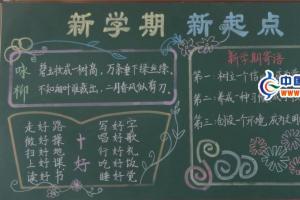 新学期 新起点
咏柳
碧玉妆成一树高，万条垂下绿丝绦。
不知细叶谁裁出，二月春风似剪刀。
十好
走好路 写好字
做好操 唱好歌
扫好地 行好礼
上好课 吃好饭
读好书 睡好觉
新学期寄语
第一:树立一个信
第二:养成一种
第三:创设一个环境,成为
中国